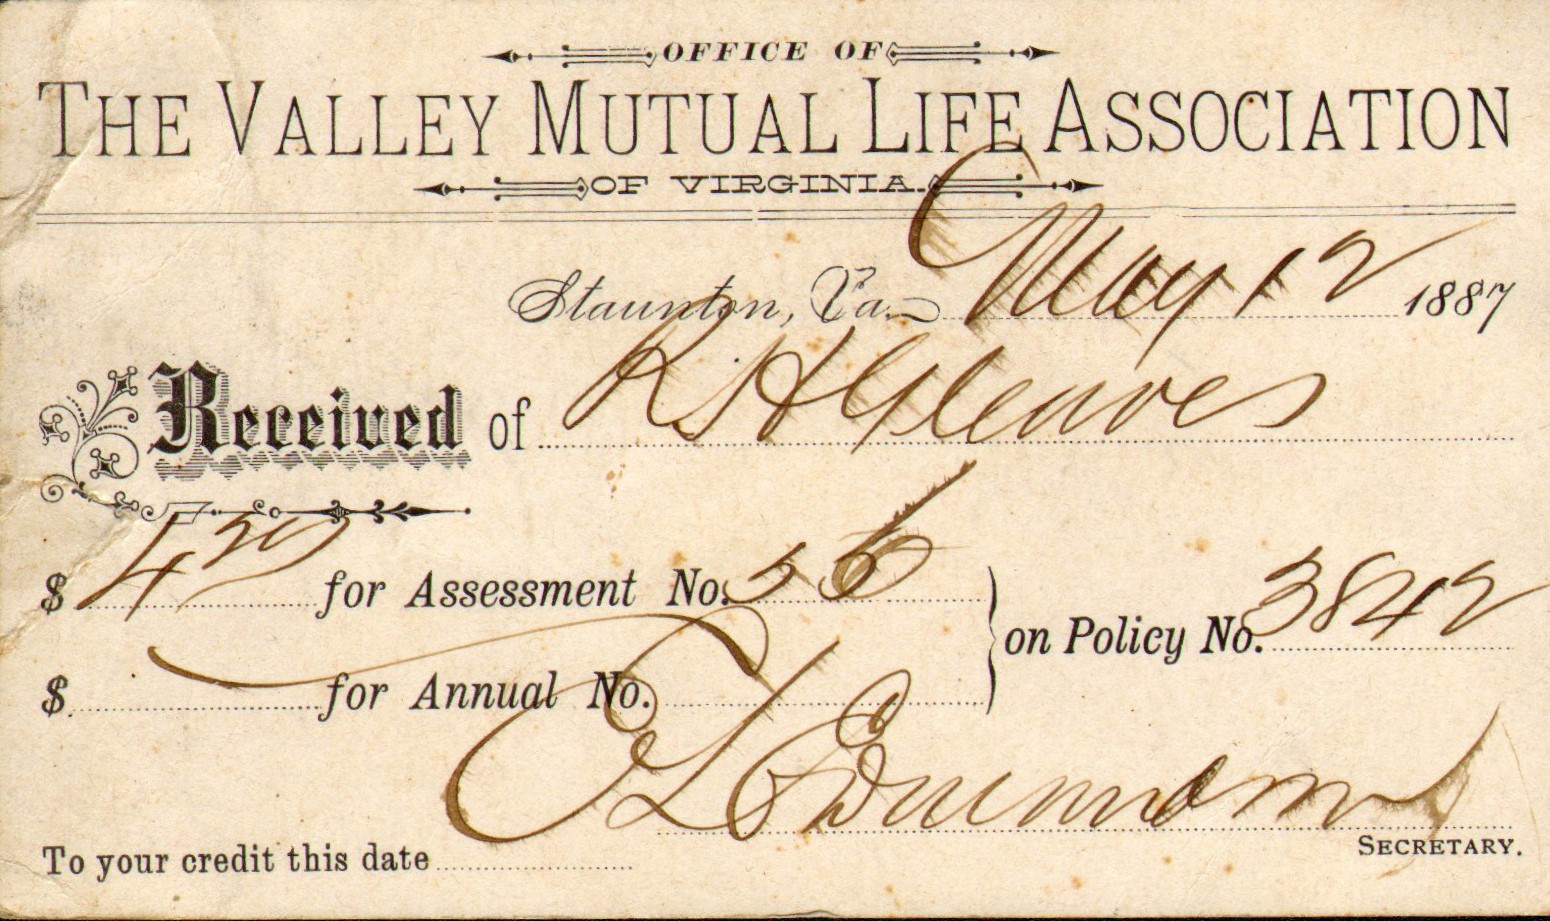 OFFICE OF
THE VALLEY MUTUAL LIFE ASSOCIATION
OF VIRGINIA.
Staunton, Va. May 12 1887
Received of R H Gleaves
$ 4 for Assessment No. 56
on Policy No. 3842
$ for Annual No.
To your credit this date
SECRETARY.